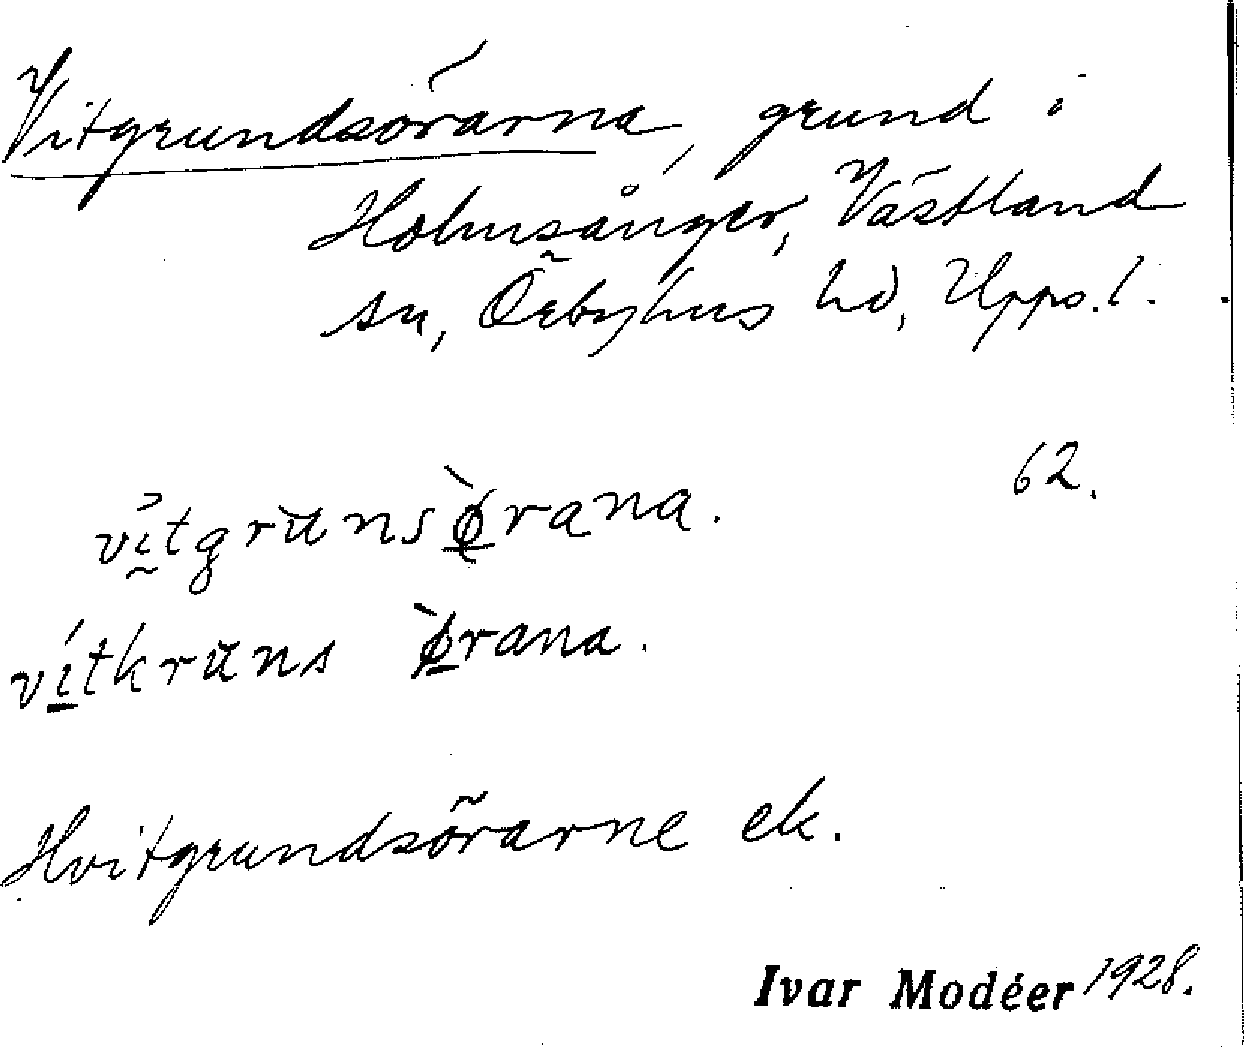 Vitgrundsörarna, grund i
Holmsånger, Västland
sn, Örbyhus hd, Upps. l.
62.
vi̲tgrünsø̲̀rana.
ví̲tkrüns ø̲̀rana.
Hvitgrundsörarne ek.
Ivar Modéer 1928.